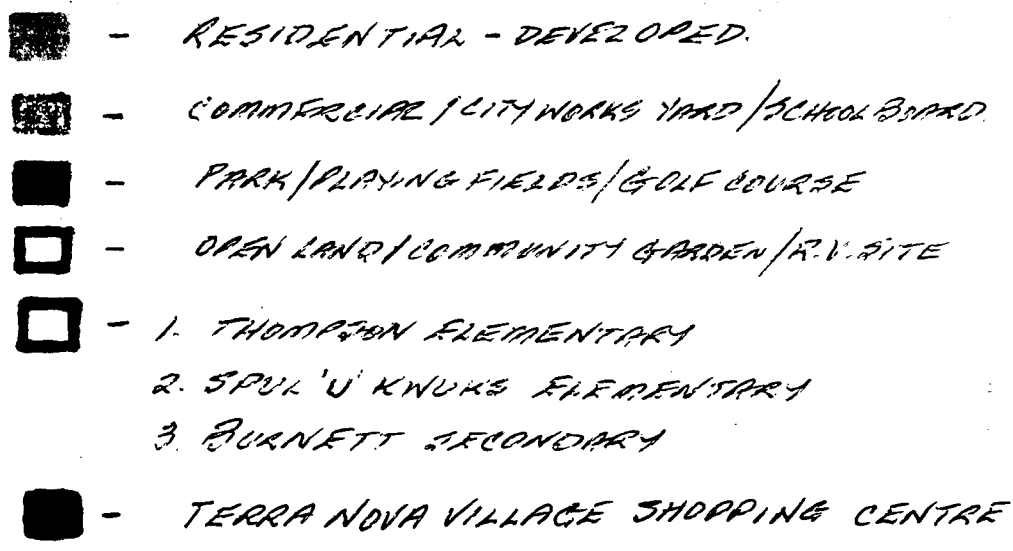 - RESIDENTIAL - DEVELOPED.
- COMMERCIAL / CITY WORKS YARD / SCHOOL BOARD
- PARK / PLAYING FIELDS / GOLF COURSE
- OPEN LAND / COMMUNITY GARDEN / R.V. SITE
- 1. THOMPSON ELEMENTARY
2. SPUL'U'KWUKS ELEMENTARY
3. BURNETT SECONDARY
- TERRA NOVA VILLAGE SHOPPING CENTRE